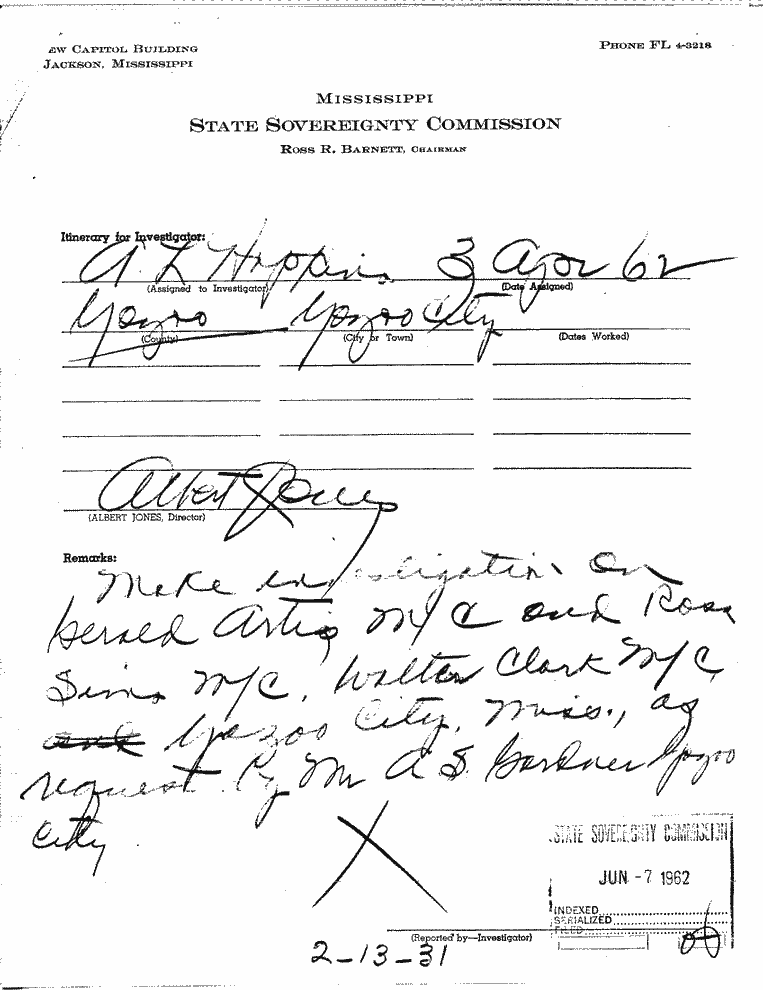 EW CAPITOL BUILDING
JACKSON, MISSISSIPPI
PHONE FL 4-3218
MISSISSIPPI
STATE SOVEREIGNTY COMMISSION
ROSS R. BARNETT, CHAIRMAN
Itinerary for Investigator:
A. L Hopkins 3 Apr 62
(Assigned to Investigator) (Date Assigned)
Yazoo Yazoo City
(County) (City or Town) (Dates Worked)
Albert Jones
(ALBERT JONES, Director)
Remarks:
Make investigation on
Gerald Artis M/C and Rosa
Sims M/C, Walter Clark M/C
and Yazoo City, Miss., as
request by Mr A S. Gardner Yazoo
City.
STATE SOVEREIGNTY COMMISSION
JUN - 7 1962
INDEXED
SERIALIZED
FILED
(Reported by—Investigator)
2-13-31